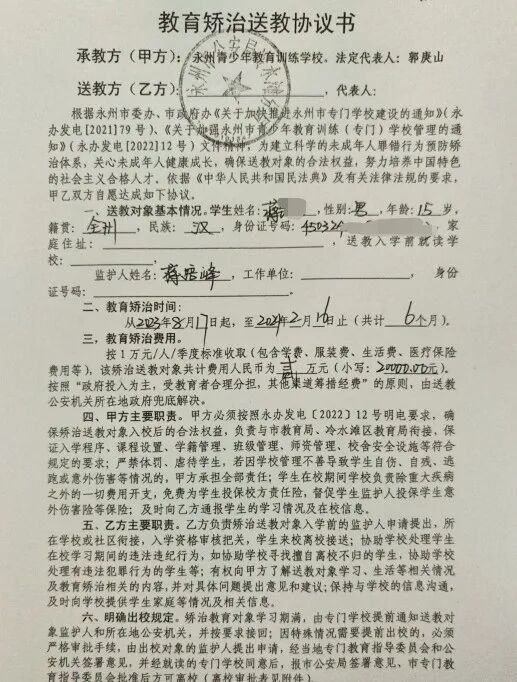 教育矫治送教协议书
承教方（甲方）：永州青少年教育训练学校。法定代表人：郭庚山
送教方（乙方）：，代表人：
根据永州市委办、市政府办《关于加快推进永州市专门学校建设的通知》（永
办发电[2021]79号）、《关于加强永州市青少年教育训练（专门）学校管理的通
知》（永办发电[2022]12号）文件精神，为建立科学的未成年人罪错行为预防矫
治体系，关心未成年人健康成长，确保送教对象的合法权益，努力培养中国特色
的社会主义合格人才。依据《中华人民共和国民法典》及有关法律法规的要求，
甲乙双方自愿达成如下协议。
一、送教对象基本情况。学生姓名：蒋，性别：男，年龄：15岁，
籍贯：全州，民族：汉，身份证号码：45032，家
庭住址：，送教入学前就读学
校：。
监护人姓名：蒋培峰，工作单位：，身份
证号码：。
二、教育矫治时间：
从2023年8月17日起，至2024年2月16日止（共计6个月）。
三、教育矫治费用。
按1万元/人/季度标准收取（包含学费、服装费、生活费、医疗保险
费用等），该矫治送教对象共计费用人民币为贰万元（小写：20000.00元）。
按照“政府投入为主，受教育者合理分担，其他渠道筹措经费”的原则，由送教
公安机关所在地政府兜底解决。
四、甲方主要职责。甲方必须按照永办发电〔2022〕12号明电要求，确
保矫治送教对象入校后的合法权益，负责与市教育局、冷水滩区教育局衔接，保
证入学程序、课程设置、学籍管理、班级管理、师资管理、校舍安全设施等符合
规定的要求；严禁体罚、虐待学生，若因学校管理不善导致学生自伤、自残、逃
跑或意外伤害等情况的，甲方承担全部责任；学生在校期间学校负责除重大疾病
之外的一切费用开支，免费为学生投保校方责任险，督促学生监护人投保学生意
外伤害险等保险；及时向乙方通报学生的学习情况及在校信息。
五、乙方主要职责。乙方负责矫治送教对象入学前的监护人申请提出，所
在学校或社区衔接，入学资格审核把关，学生来校离校接送；协助学校处理学生
在校学习期间的违法违纪行为，如协助学校寻找擅自离校不归的学生，协助学校
处理有违法犯罪行为的学生等；有权向甲方了解送教对象学习、生活等相关情况
及教育矫治相关的内容，并对具体问题提出意见和建议；保持与学校的信息沟通，
及时向学校提供学生家庭等情况及相关信息。
六、明确出校规定。矫治教育对象学习期满，由专门学校提前通知送教对
象监护人和所在地公安机关，并按要求接回；因特殊情况需要提前出校的，必须
严格审批手续，由出校对象的监护人提出申请，经当地专门教育指导委员会和公
安机关签署意见，并经就读的专门学校同意后，报市公安局签署意见、市专门教
育指导委员会批准后方可离校（离校审批表见附件）。